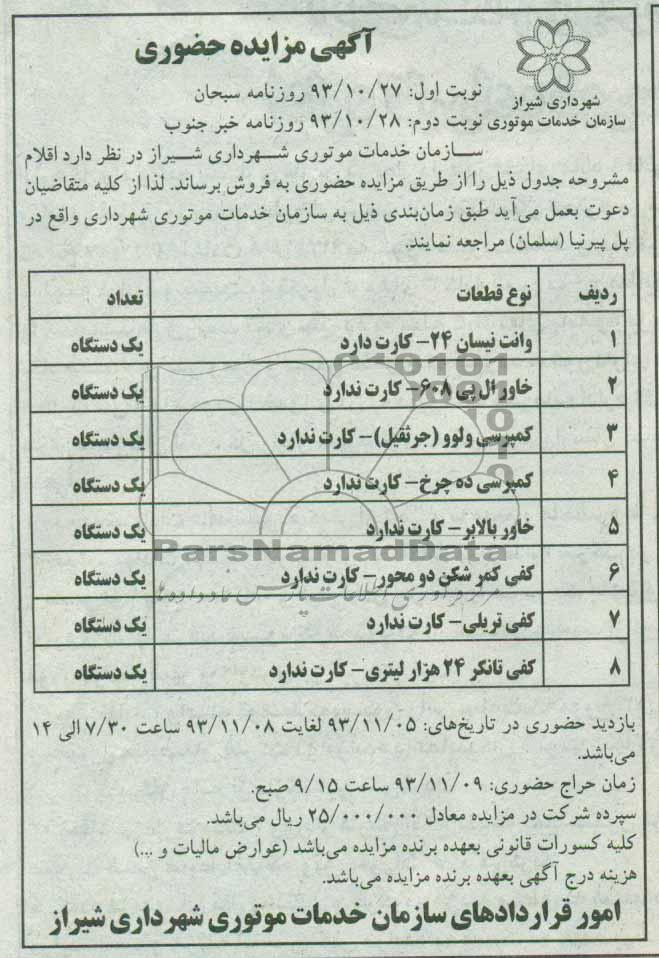 آگهی مزایده حضوری
شهرداری شیراز
سازمان خدمات موتوری
نوبت اول: ۹۳/۱۰/۲۷ روزنامه سبحان
نوبت دوم: ۹۳/۱۰/۲۸ روزنامه خبر جنوب
سازمان خدمات موتوری شهرداری شیراز در نظر دارد اقلام
مشروحه جدول ذیل را از طریق مزایده حضوری به فروش برساند. لذا از کلیه متقاضیان
دعوت بعمل می‌آید طبق زمان‌بندی ذیل به سازمان خدمات موتوری شهرداری واقع در
پل پیرنیا (سلمان) مراجعه نمایند.
ردیف نوع قطعات تعداد
۱ وانت نیسان ۲۴- کارت دارد یک دستگاه
۲ خاور ال پی ۶۰۸- کارت ندارد یک دستگاه
۳ کمپرسی ولوو (جرثقیل)- کارت ندارد یک دستگاه
۴ کمپرسی ده چرخ- کارت ندارد یک دستگاه
۵ خاور بالابر- کارت ندارد یک دستگاه
۶ کفی کمر شکن دو محور- کارت ندارد یک دستگاه
۷ کفی تریلی- کارت ندارد یک دستگاه
۸ کفی تانکر ۲۴ هزار لیتری- کارت ندارد یک دستگاه
ParsNamadData
مرکز فرآوری اطلاعات پارس نماد داده ها
بازدید حضوری در تاریخ‌های: ۹۳/۱۱/۰۵ لغایت ۹۳/۱۱/۰۸ ساعت ۷/۳۰ الی ۱۴
می‌باشد.
زمان حراج حضوری: ۹۳/۱۱/۰۹ ساعت ۹/۱۵ صبح.
سپرده شرکت در مزایده معادل ۲۵/۰۰۰/۰۰۰ ریال می‌باشد.
کلیه کسورات قانونی بعهده برنده مزایده می‌باشد (عوارض مالیات و ...)
هزینه درج آگهی بعهده برنده مزایده می‌باشد.
امور قراردادهای سازمان خدمات موتوری شهرداری شیراز